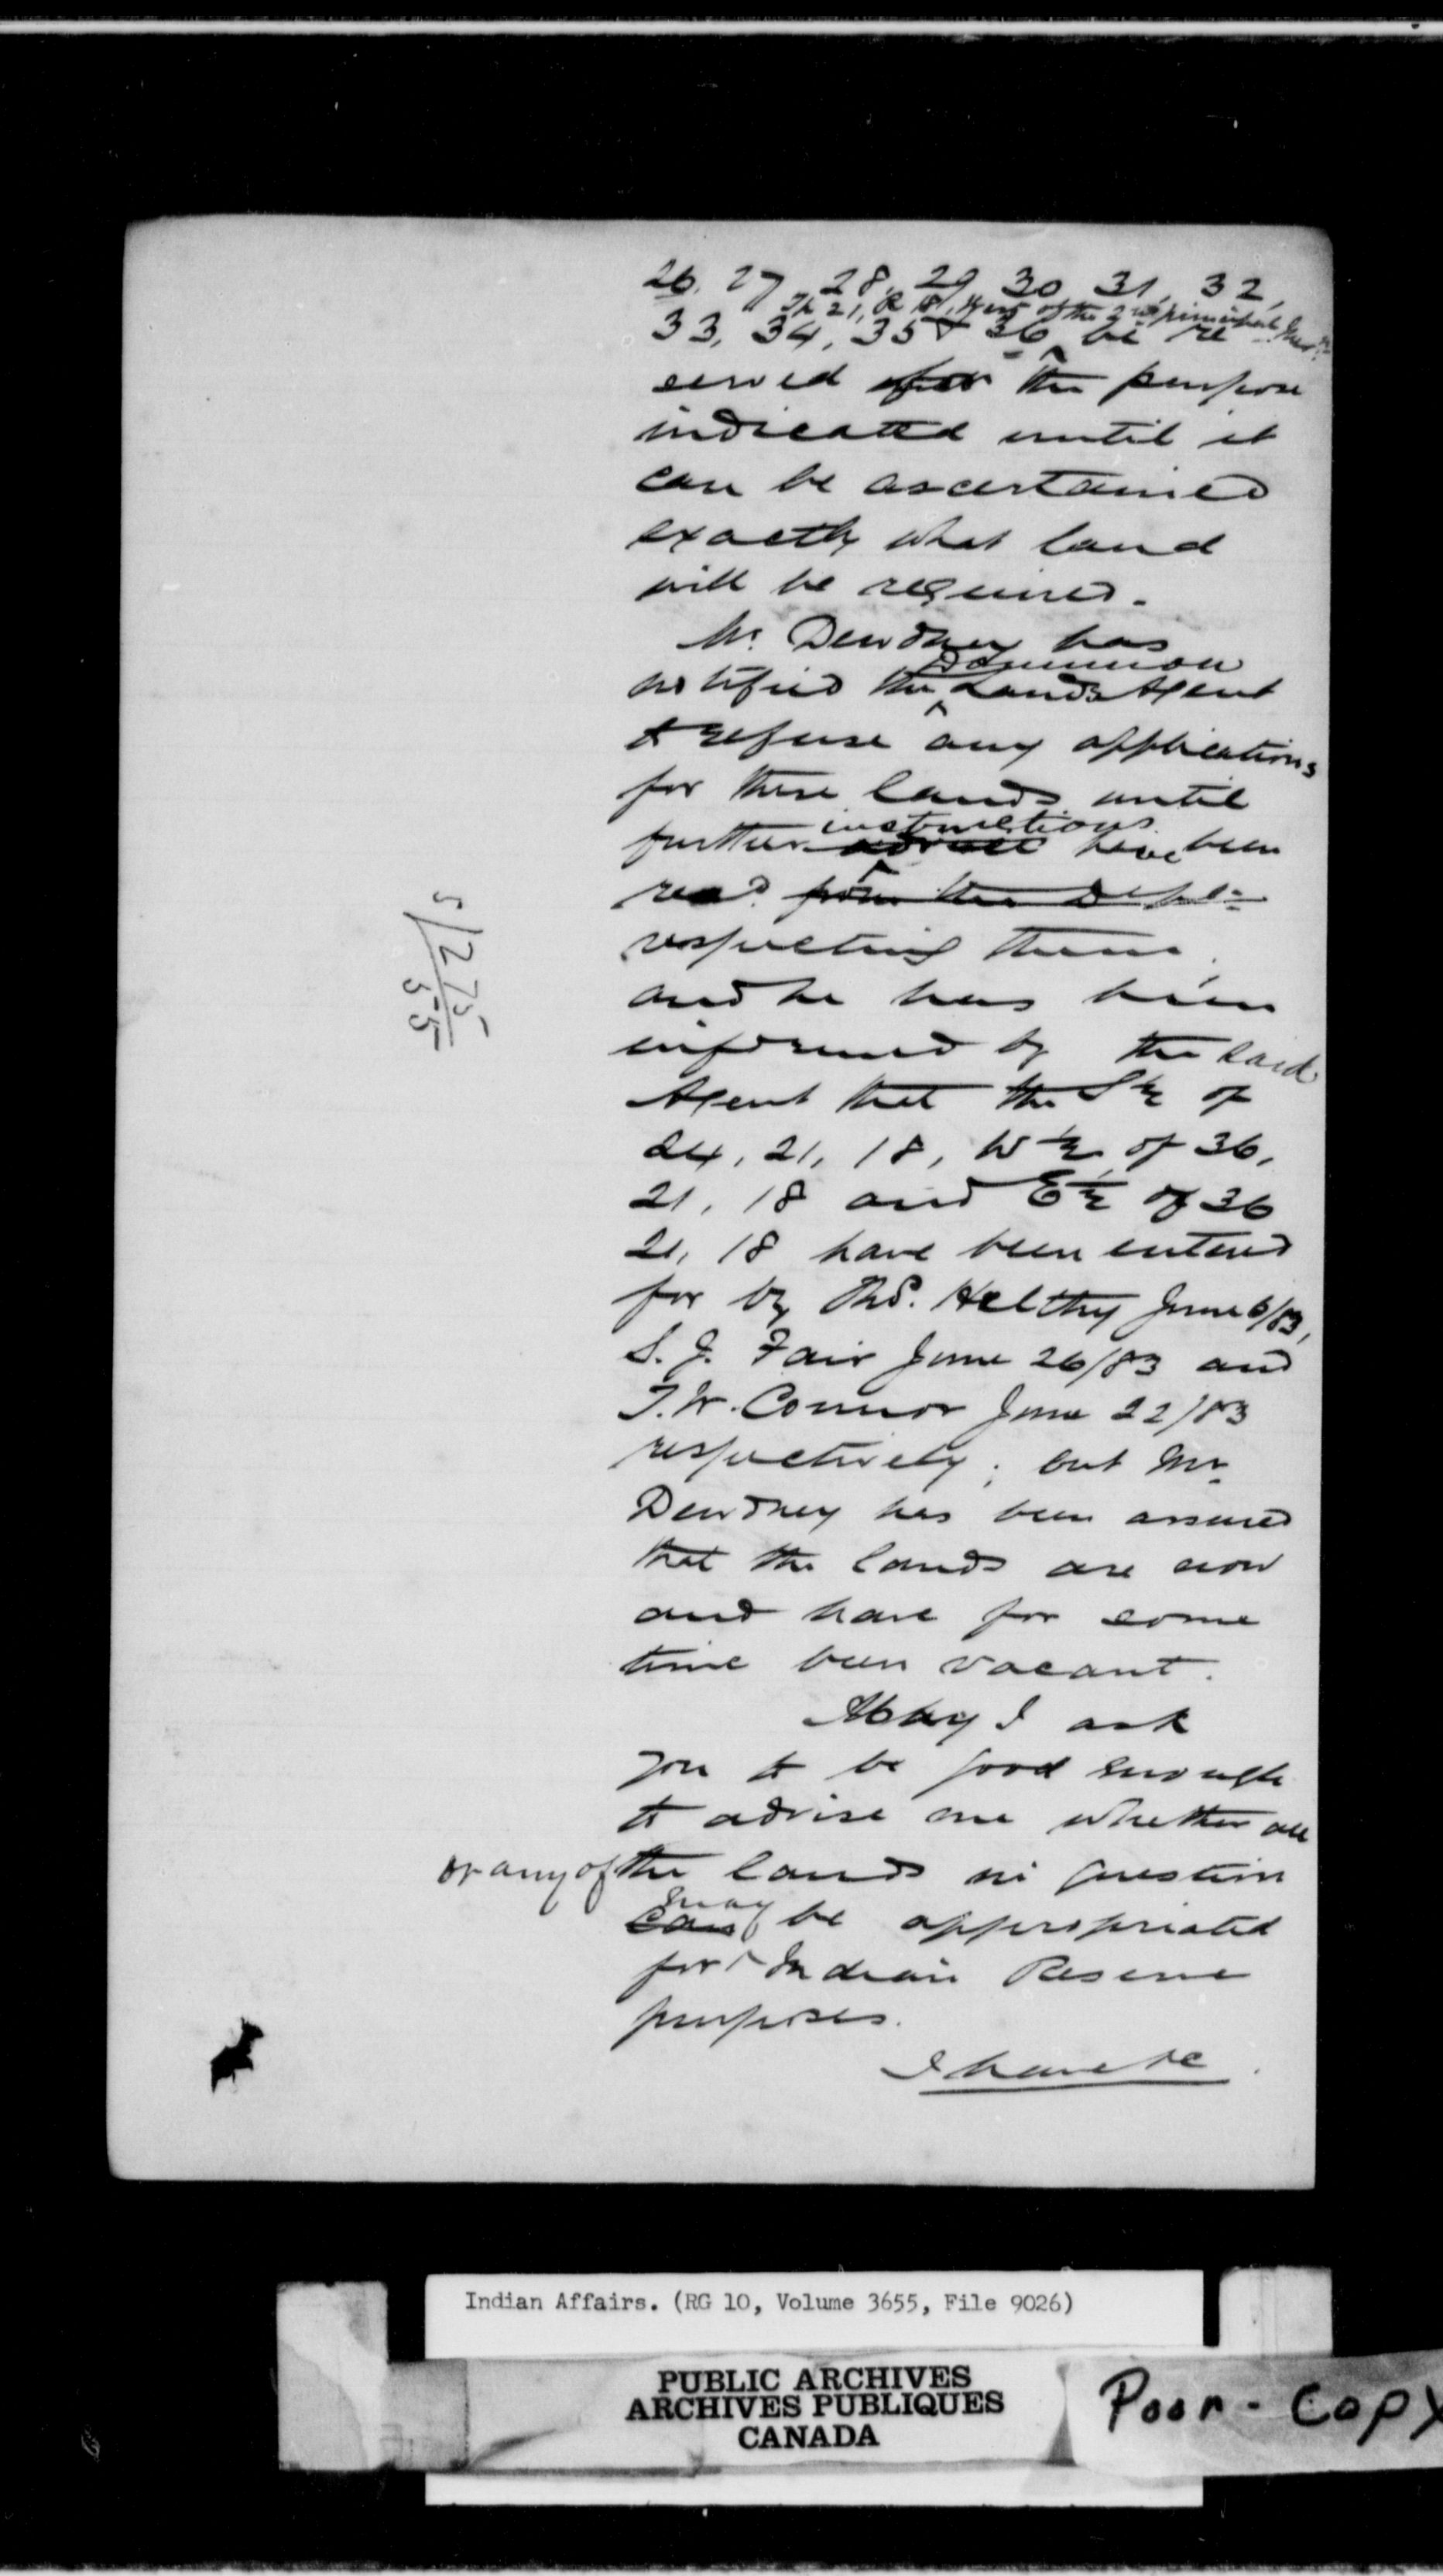 26, 27, 28, 29, 30, 31, 32,
Tp 21, R 18, West of the 2nd principal Mer.n
33, 34, 35 & 36 be re-
served for the purpose
indicated until it
can be ascertained
exactly what land
will be required.
Mr. Dewdney has
Dominion
notified the Lands Agent
to refuse any applications
for these lands until
instructions
further advice have been
recd. from the Dept.
respecting them,
and he has been
informed by the said
Agent that the S½ of
24, 21, 18, W½ of 36,
21, 18 and E½ of 36
21, 18 have been entered
for by Thos. June 6/83,
S. J. Fair June 26/83 and
T. W. Connor June 22/83
respectively; but Mr.
Dewdney has been assured
that the lands are now
and have for some
time been vacant.
May I ask
you to be good enough
to advise me whether all
or any of the lands in question
may
can be appropriated
for Indian Reserve
purposes.
I have &c
5/275
55
Indian Affairs. (RG 10, Volume 3655, File 9026)
PUBLIC ARCHIVES
ARCHIVES PUBLIQUES
CANADA
Poor-Copy